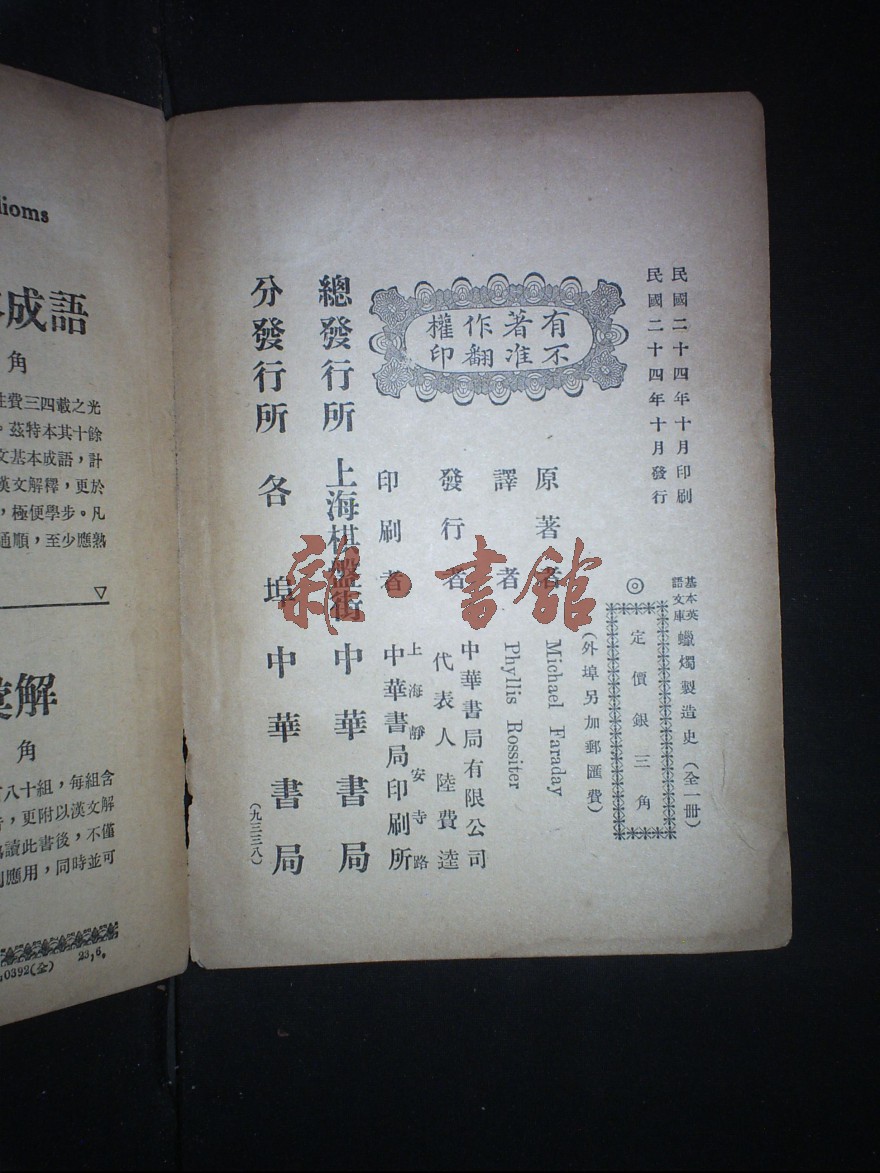 民國二十四年十月印刷
民國二十四年十月發行
基本英
語文庫 蠟燭製造史(全一冊)
◎
定價銀三角
(外埠另加郵匯費)
有著作權
不准翻印
原著者 Michael Faraday
譯者 Phyllis Rossiter
發行者 中華書局有限公司
代表人陸費逵
印刷者 上海靜安寺路
中華書局印刷所
總發行所 上海棋盤街 中華書局
分發行所 各埠 中華書局
(九三三八)
雜·書館
dioms
成語
角
費三四載之光
。茲特本其十餘
文基本成語,計
漢文解釋,更於
,極便學步。凡
通順,至少應熟
▽
彙解
角
八十組,每組含
,更附以漢文解
讀此書後,不僅
應用,同時並可
0392(全) 23,6.